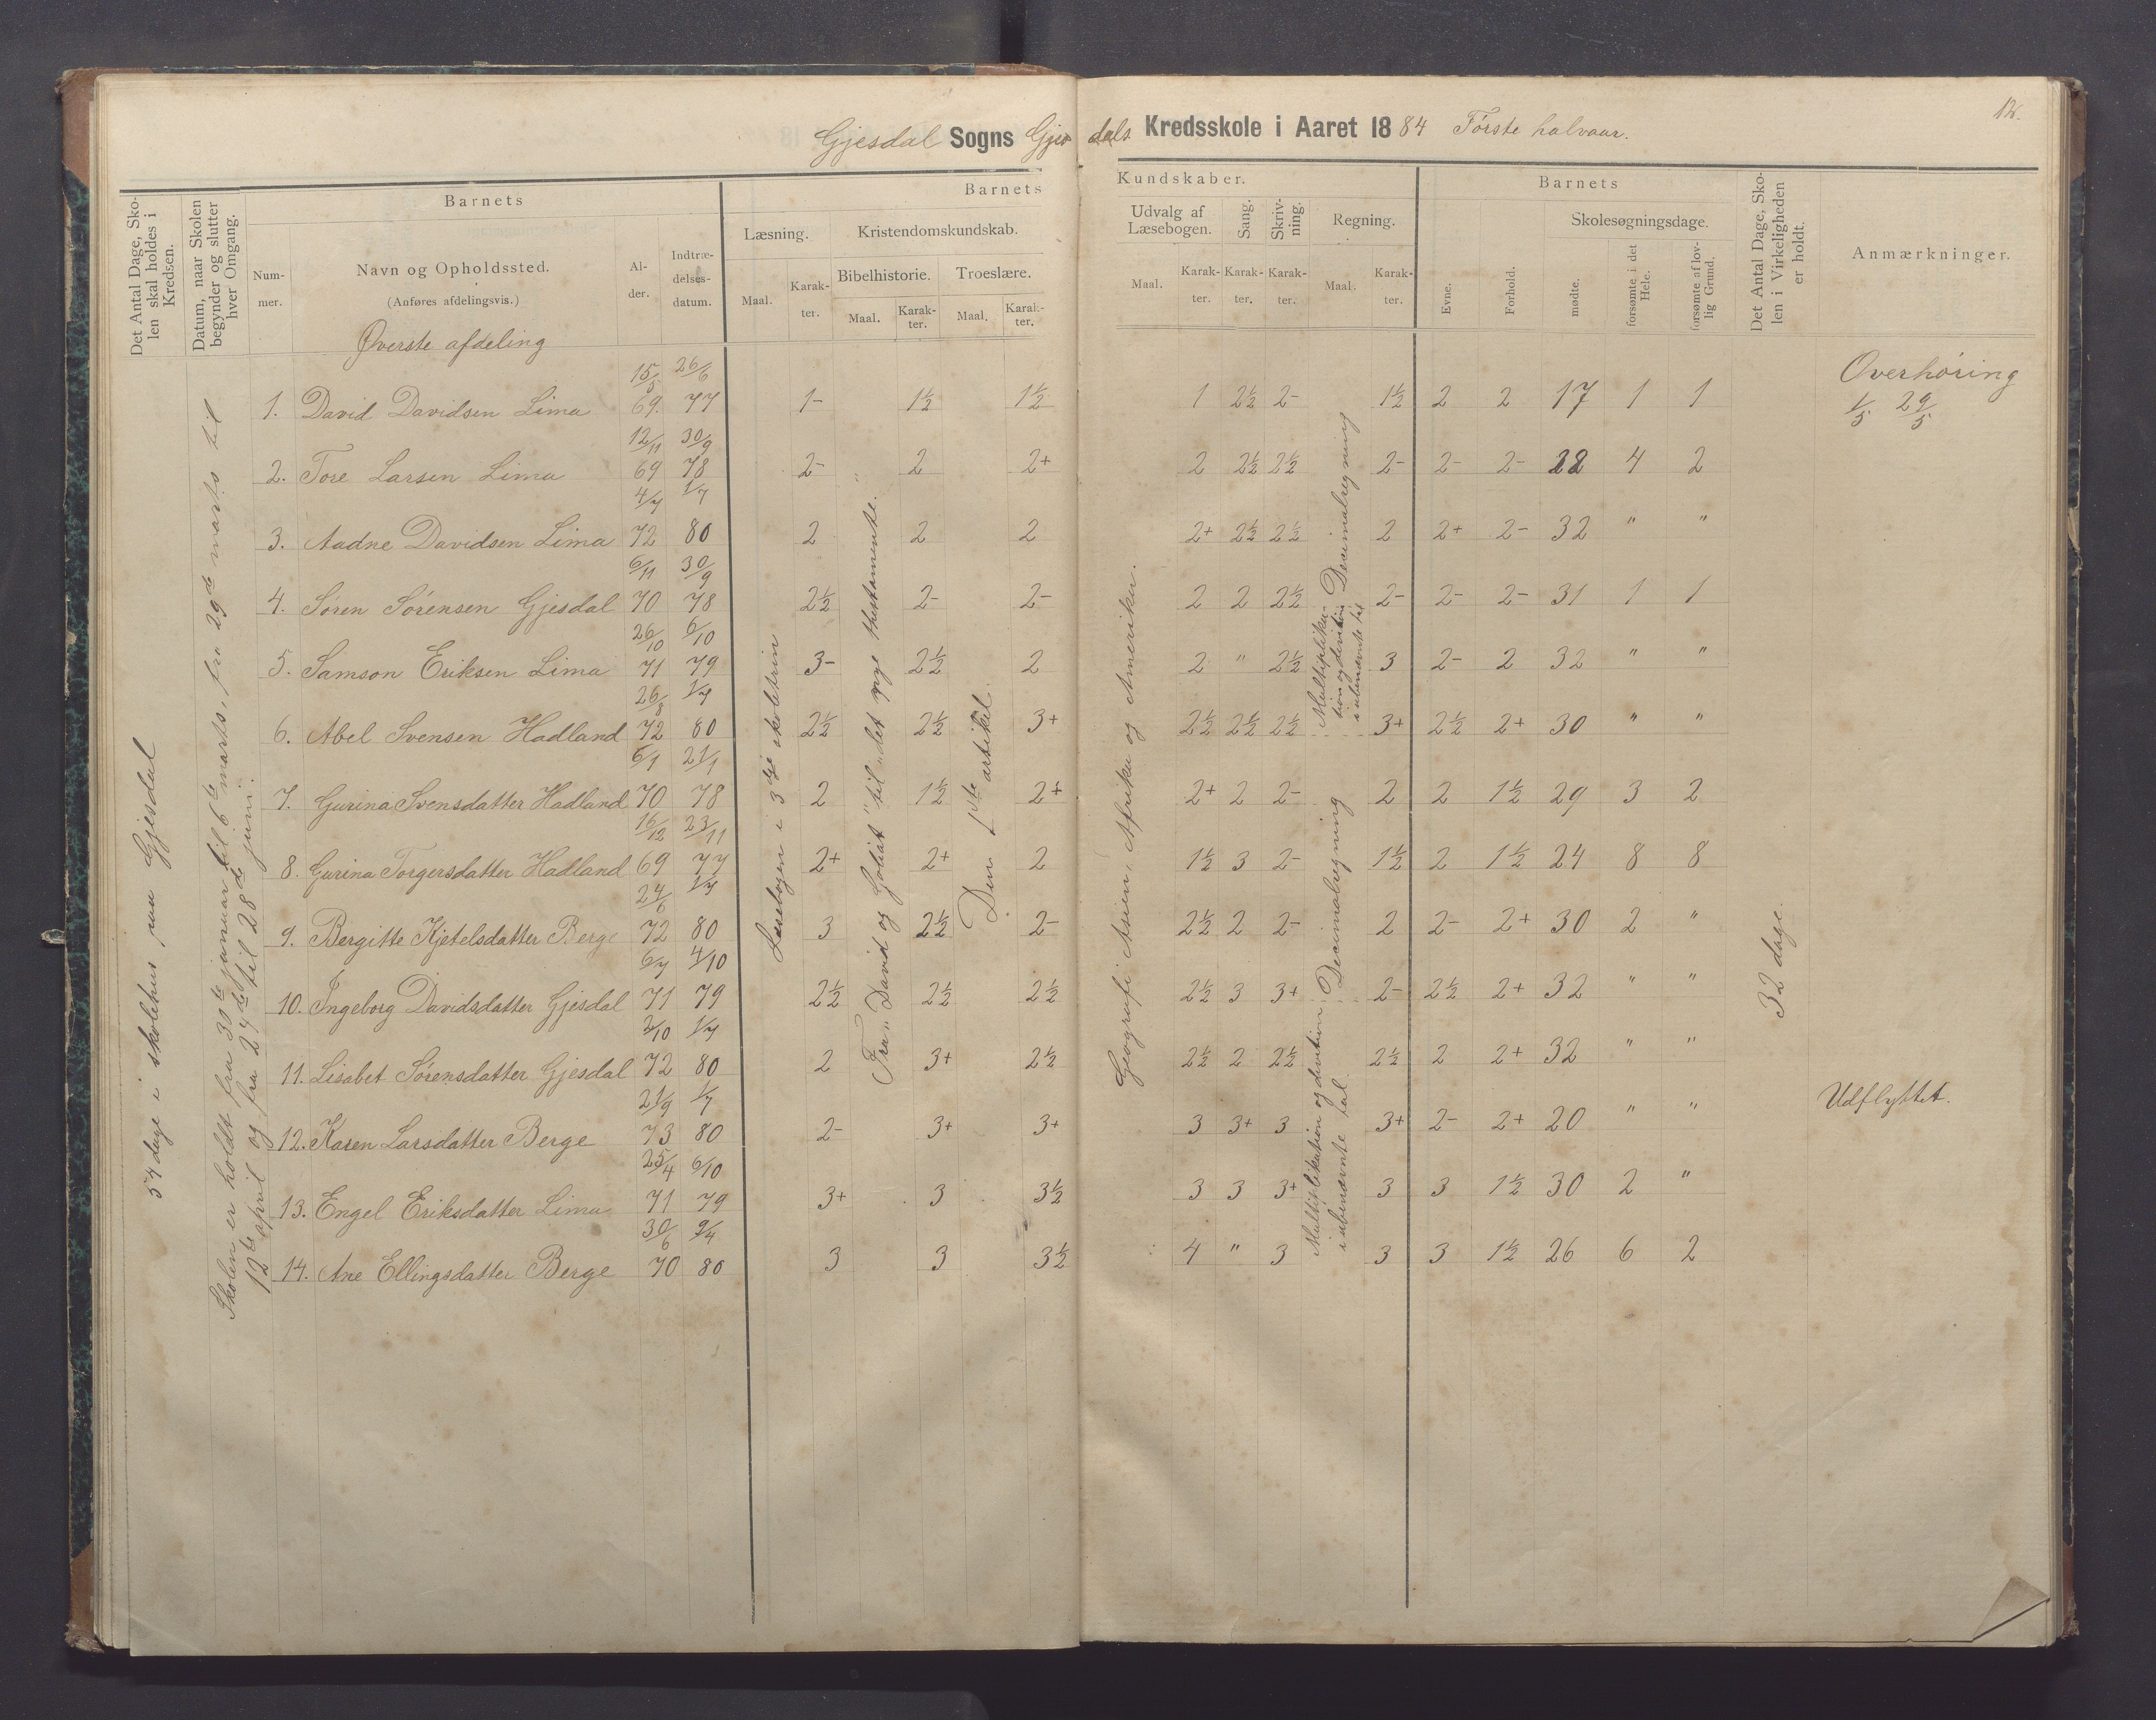 12.
Gjesdal Sogns Gjesdals Kredsskole i Aaret 1884 Første halvaar.
Det Antal Dage, Skolen skal holdes i Kredsen.
Datum, naar Skolen begynder og slutter hver Omgang.
Barnets
Nummer.
Navn og Opholdssted.
(Anføres afdelingsvis.)
Alder.
Indtrædelsesdatum.
Barnets Kundskaber.
Læsning.
Maal. Karakter.
Kristendomskundskab.
Bibelhistorie.
Maal. Karakter.
Troeslære.
Maal. Karakter.
Udvalg af Læsebogen.
Maal. Karakter.
Sang.
Karakter.
Skrivning.
Karakter.
Regning.
Maal. Karakter.
Barnets
Evne.
Forhold.
Skolesøgningsdage.
mødte.
forsømte i det Hele.
forsømte af lovlig Grund.
Det Antal Dage, Skolen i Virkeligheden er holdt.
Anmærkninger.
57 dage i skolehus paa Gjesdal
Skolen er holdt fra 30te januar til 6te marts, fra 29de marts til
12te april og fra 27de til 28de juni.
Øverste afdeling
Læsebogen i 3dje skoletrin
Fra „David og Goliat" til „det nye thestamente."
Den 1ste artikel.
Geografi Asien, Afrika og Amerika.
Multiplikation og division i ubenævnte tal
Decimalregning
Multiplikation og division i ubenævnte tal.
Decimalregning
32 dage.
Overhøring
1/5 29/5
1. David Davidsen Lima 15/5 69. 26/6 77 1- 1½ 1½ 1 2½ 2- 1½ 2 2 17 1 1
2. Tore Larsen Lima 12/11 69 30/9 78 2- 2 2+ 2 2½ 2½ 2- 2- 2- 22 4 2
3. Aadne Davidsen Lima 4/7 72 1/7 80 2 2 2 2+ 2½ 2½ 2 2+ 2- 32 " "
4. Søren Sørensen Gjesdal 6/11 70 30/9 78 2½ 2- 2- 2 2 2½ 2- 2- 2- 31 1 1
5. Samson Eriksen Lima 26/10 71 6/10 79 3- 2½ 2 2 " 2½ 3 2- 2 32 " "
6. Abel Svensen Hadland 26/8 72 1/7 80 2½ 2½ 3+ 2½ 2½ 2½ 3+ 2½ 2+ 30 " "
7. Gurina Svensdatter Hadland 6/1 70 21/1 78 2 1½ 2+ 2+ 2 2- 2 2 1½ 29 3 2
8. Gurina Torgersdatter Hadland 16/12 69 23/11 77 2+ 2+ 2 1½ 3 2- 1½ 2 1½ 24 8 8
9. Bergitte Kjetelsdatter Berge 24/6 72 1/7 80 3 2½ 2- 2½ 2 2- 2 2- 2+ 30 2 "
10. Ingeborg Davidsdatter Gjesdal 6/7 71 4/10 79 2½ 2½ 2½ 2½ 3 3+ 2- 2½ 2+ 32 " "
11. Lisabet Sørensdatter Gjesdal 2/10 72 1/7 80 2 3+ 2½ 2½ 2 2½ 2½ 2 2+ 32 " "
12. Karen Larsdatter Berge 21/9 73 1/7 80 2- 3+ 3+ 3 3+ 3 3+ 2- 2+ 20 " " Udflyttet.
13. Engel Eriksdatter Lima 25/4 71 6/10 79 3+ 3 3½ 3 3 3+ 3 3 1½ 30 2 "
14. Ane Ellingsdatter Berge 30/6 70 9/4 80 3 3 3½ 4 " 3 3 3 1½ 26 6 2